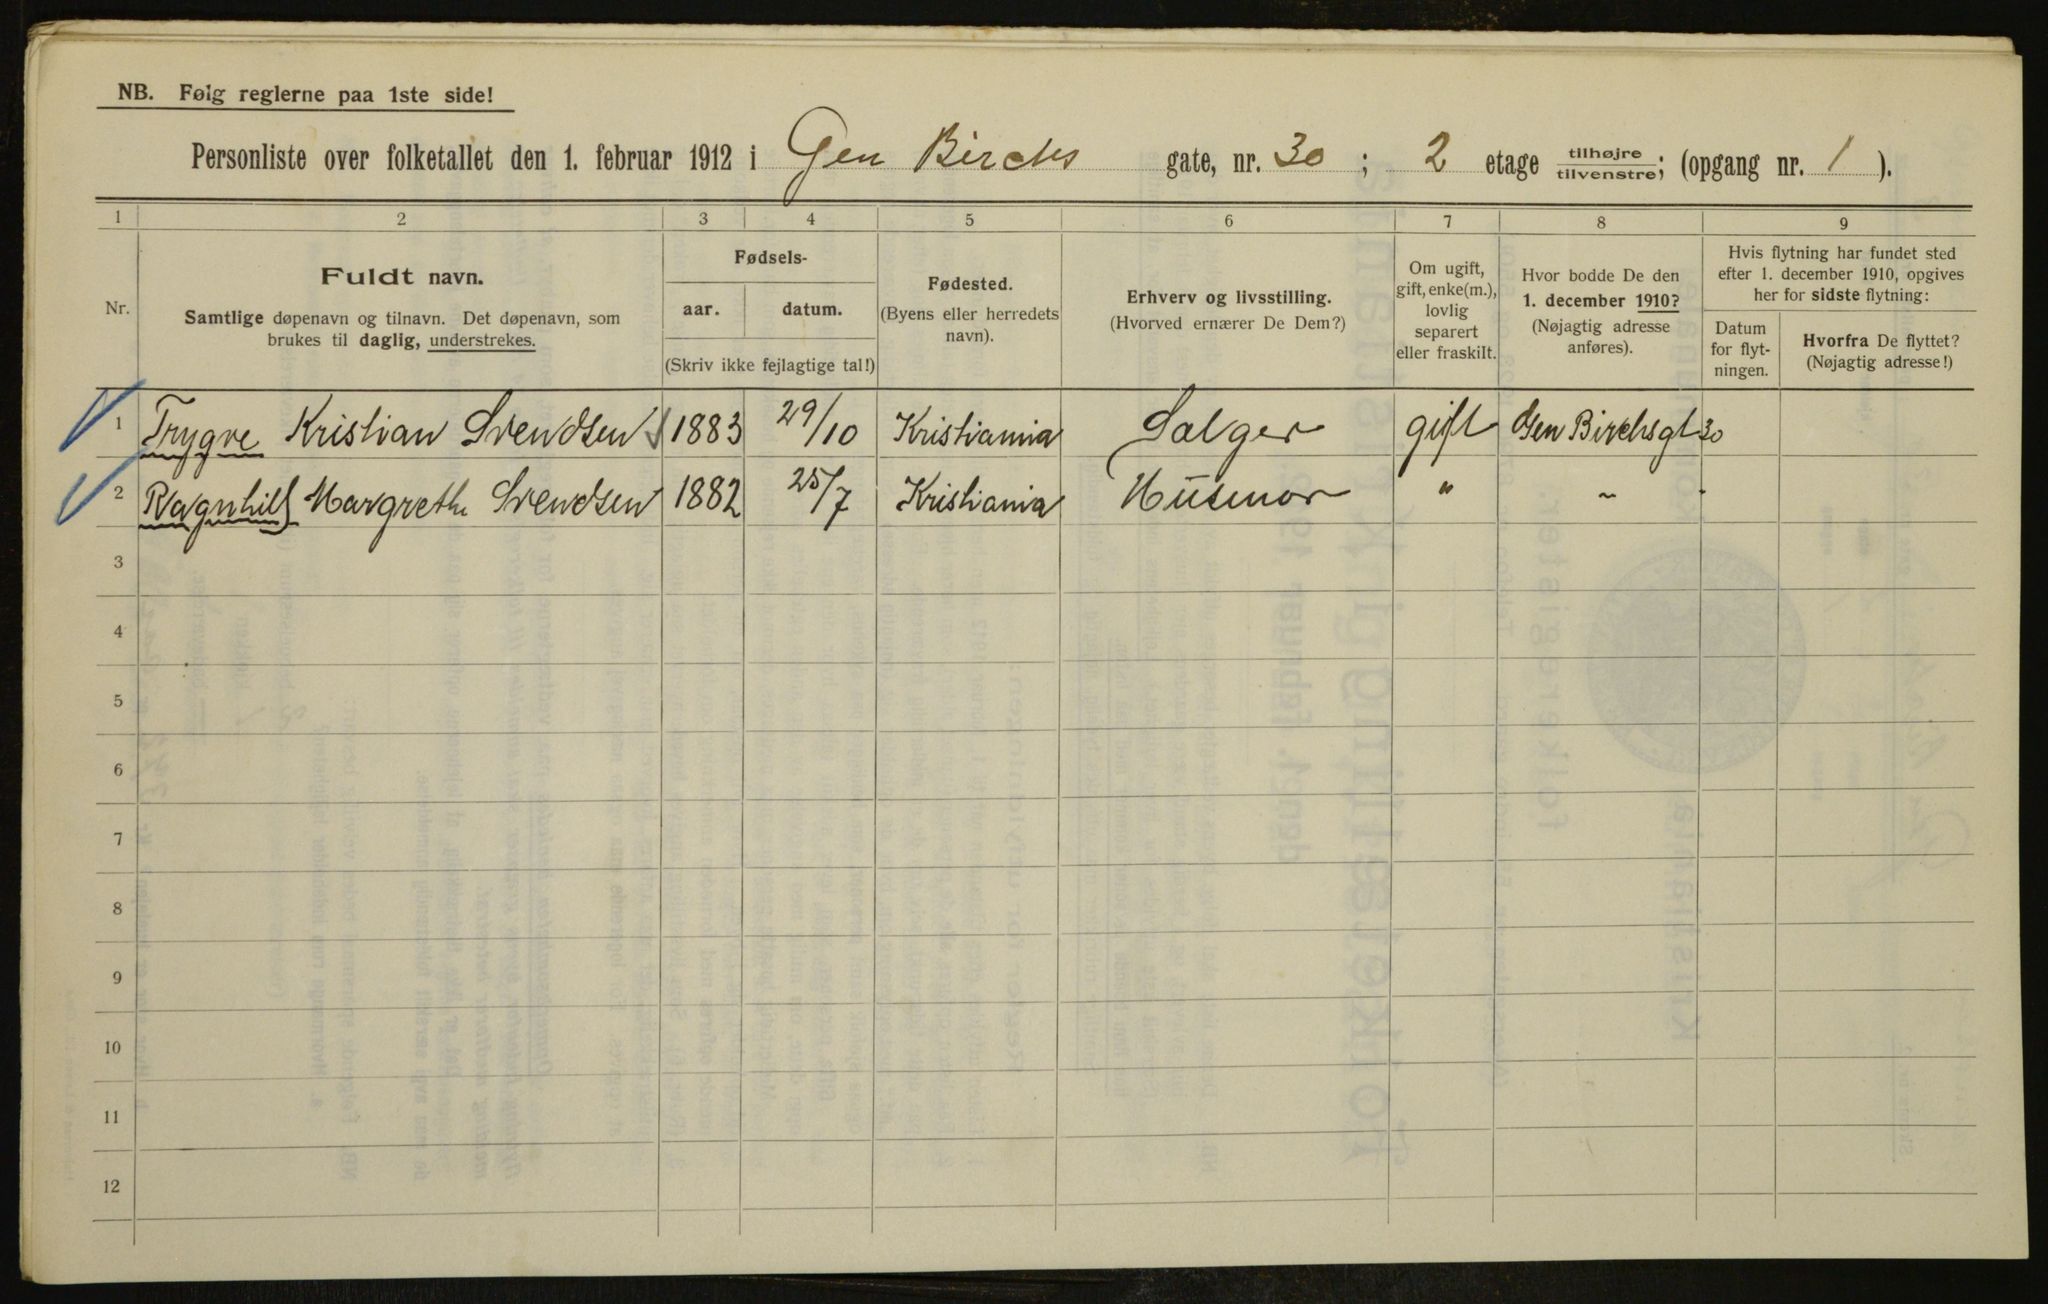 NB. Følg reglerne paa 1ste side!
Personliste over folketallet den 1. februar 1912 i Gen Birchs gate, nr. 30 ; 2 etage tilhøjre tilvenstre; (opgang nr. 1 ).
1 2 3 4 5 6 7 8 9
Nr.
Fuldt navn.
Samtlige døpenavn og tilnavn. Det døpenavn, som
brukes til daglig, understrekes.
Fødsels-
aar. datum.
(Skriv ikke fejlagtige tal!)
Fødested.
(Byens eller herredets
navn).
Erhverv og livsstilling.
(Hvorved ernærer De Dem?)
Om ugift,
gift, enke(m.),
lovlig
separert
eller fraskilt.
Hvor bodde De den
1. december 1910?
(Nøjagtig adresse
anføres).
Hvis flytning har fundet sted
efter 1. december 1910, opgives
her for sidste flytning:
Datum
for flyt-
ningen.
Hvorfra De flyttet?
(Nøjagtig adresse!)
1 Trygve Kristian Svendsen 1883 29/10 Kristiania Sælger gift Gen Birchsgt 30
2 Ragnhild Margrethe Svendsen 1882 25/7 Kristiania Husmor " ~
3
4
5
6
7
8
9
10
11
12